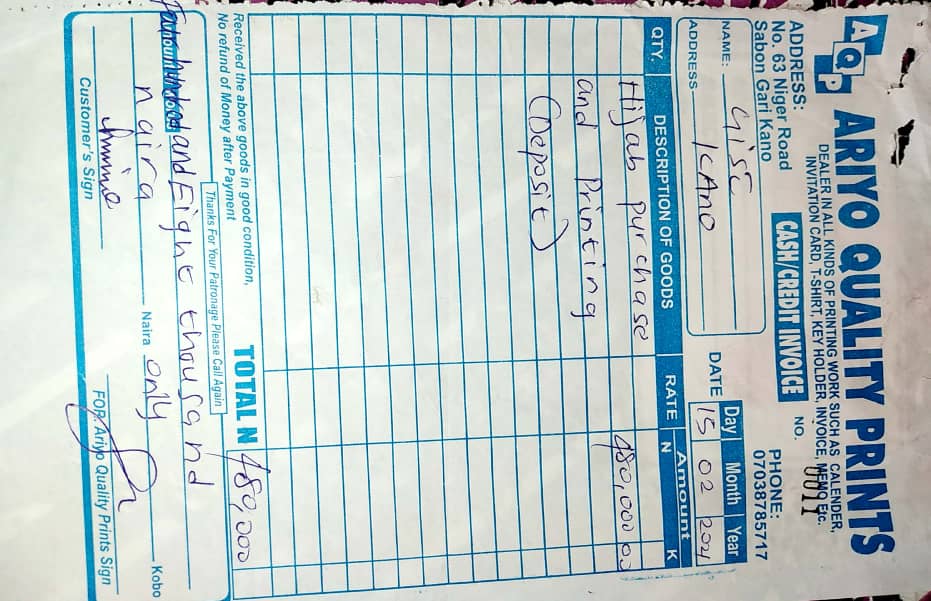 AQP ARIYO QUALITY PRINTS
DEALER IN ALL KINDS OF PRINTING WORK SUCH AS CALENDER,
INVITATION CARD, T-SHIRT, KEY HOLDER, INVOICE, MEMO Etc.
ADDRESS:
No. 63 Niger Road
Sabon Gari Kano
CASH/CREDIT INVOICE
NO. 0011
PHONE:
07038785717
NAME: GISE
ADDRESS KANO
DATE
Day Month Year
15 02
QTY. DESCRIPTION OF GOODS RATE Amount
N K
Hijab purchase 480,000 00
and Printing
(Deposit)
TOTAL N 480,000
Received the above goods in good condition,
No refund of Money after Payment
Thanks For Your Patronage Please Call Again
hundred and Eight thousand
naira Naira only Kobo
Customer's Sign
FOR: Ariyo Quality Prints Sign